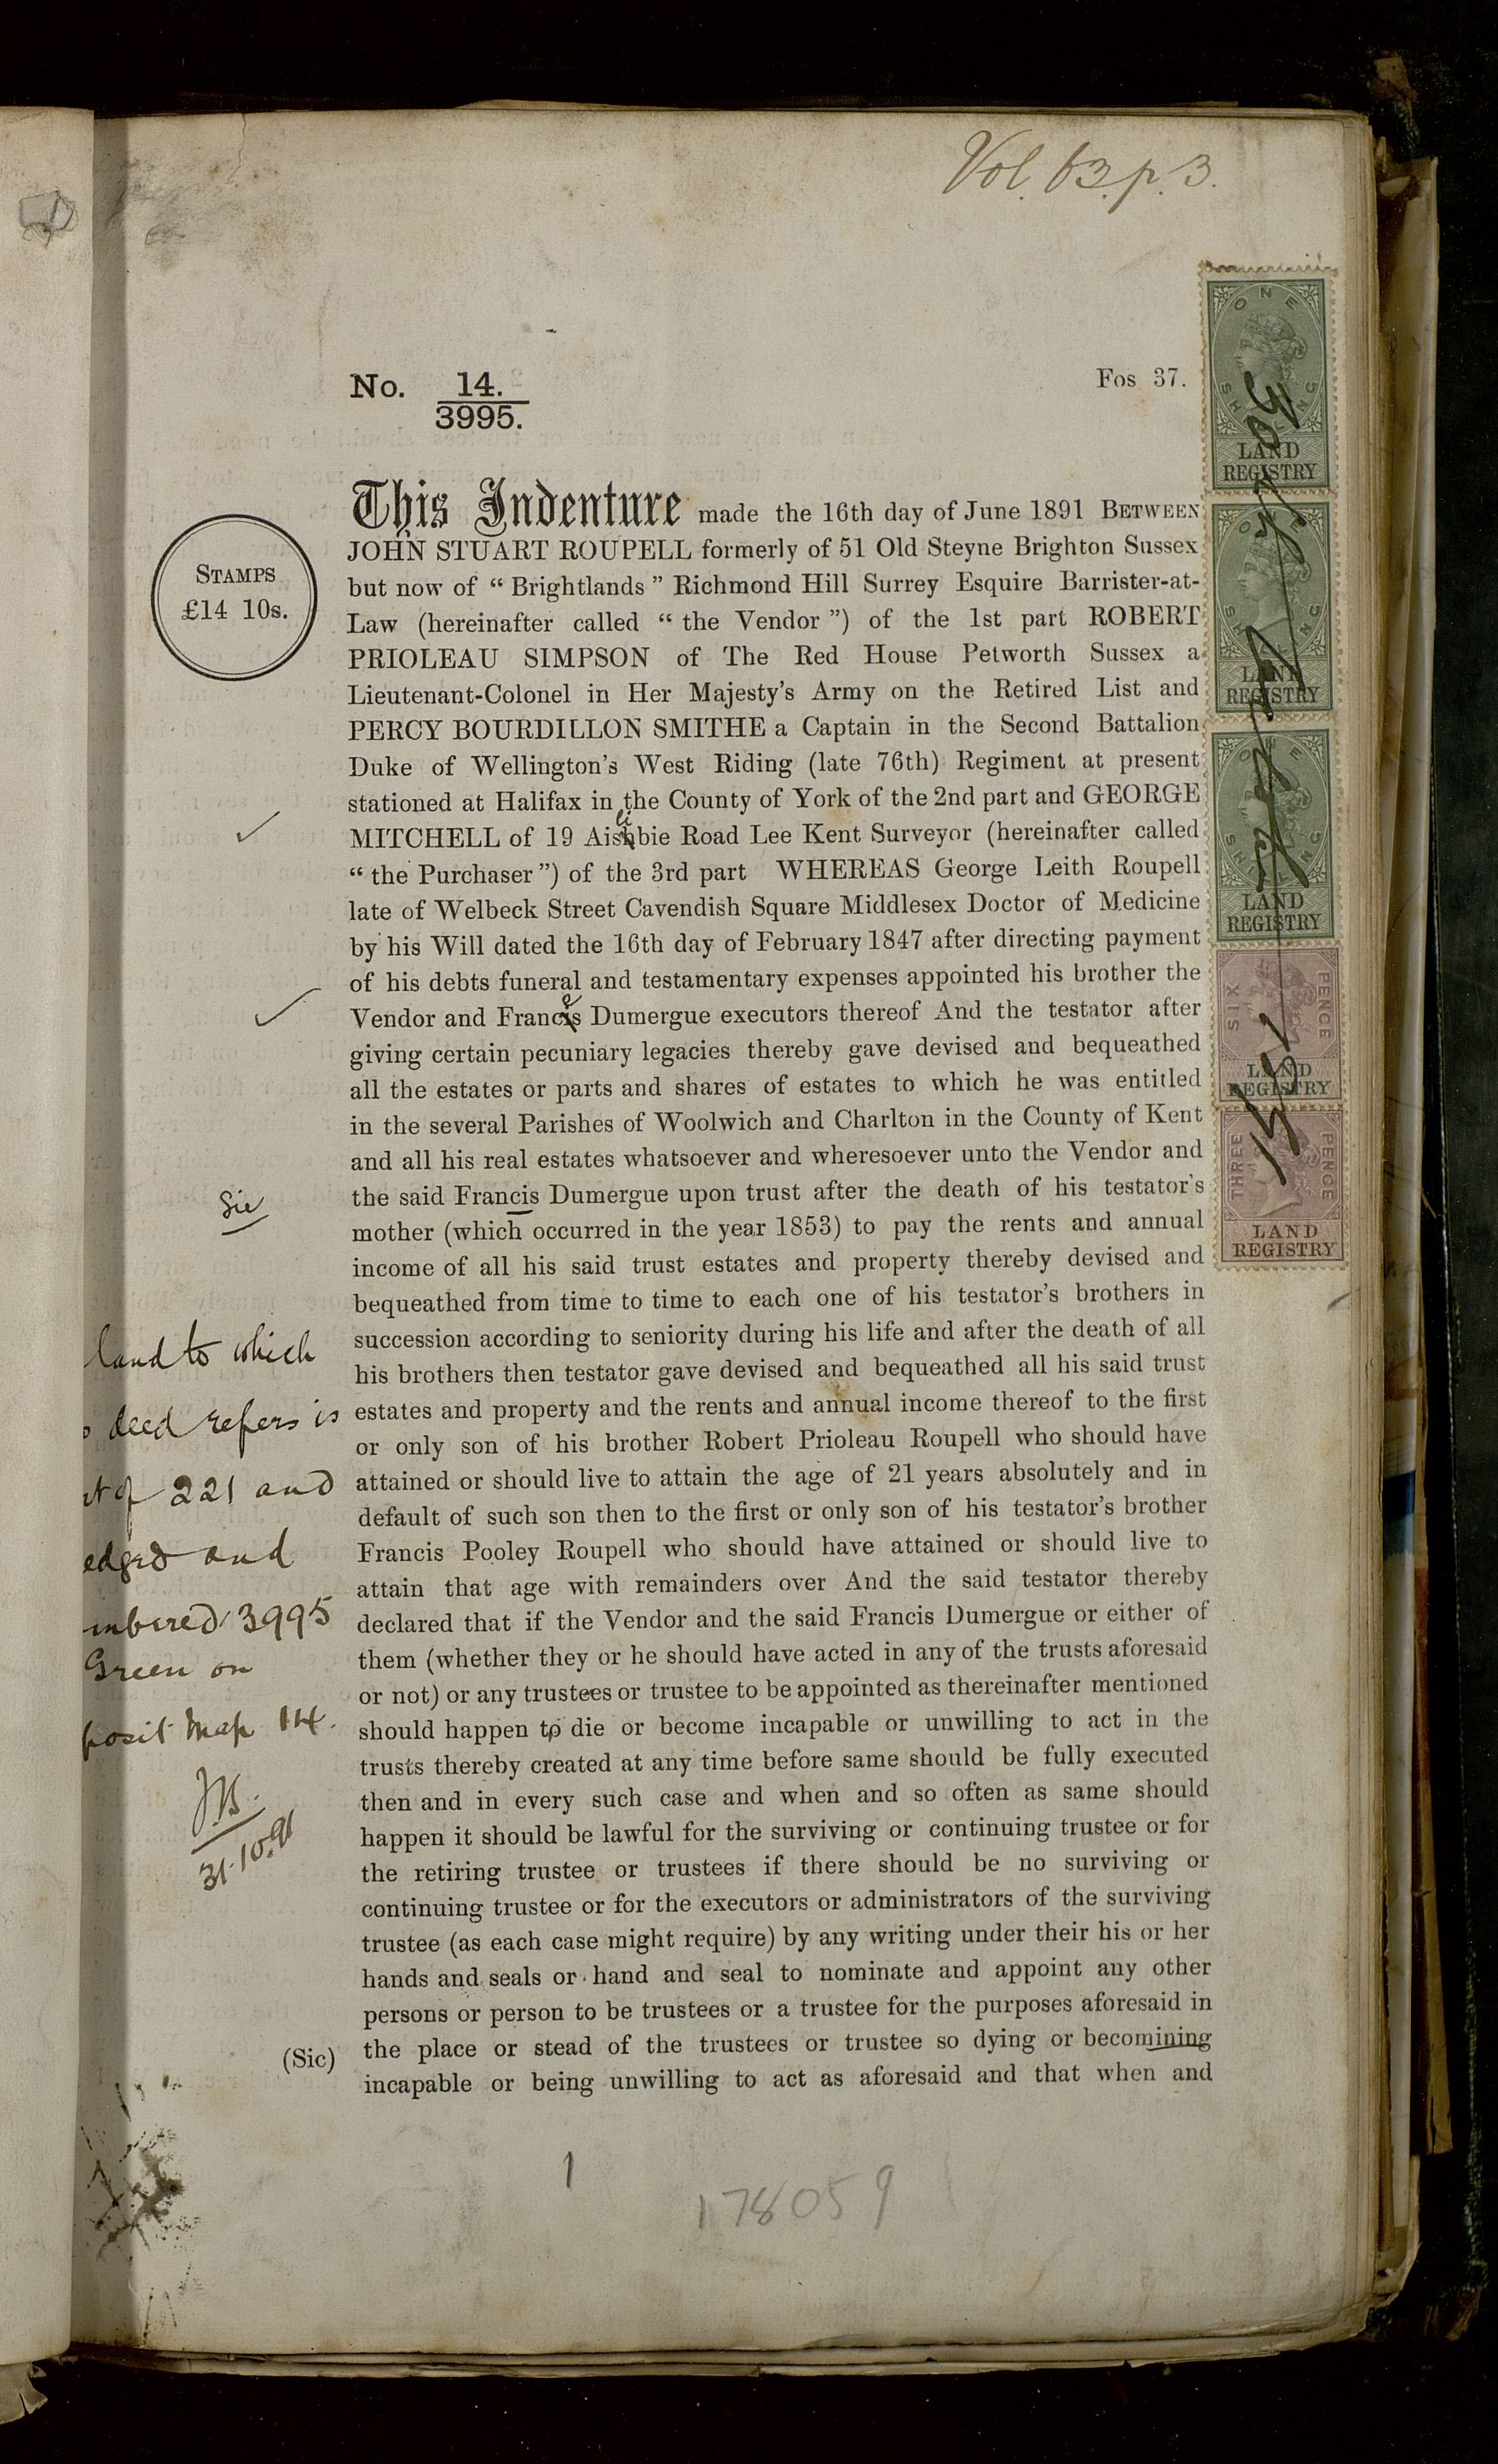 Vol. 63. p. 3.
No. 14.
3995.
Fos 37.
STAMPS
£14 10s.
This Indenture made the 16th day of June 1891 BETWEEN
JOHN STUART ROUPELL formerly of 51 Old Steyne Brighton Sussex
but now of “ Brightlands ” Richmond Hill Surrey Esquire Barrister-at-
Law (hereinafter called “ the Vendor ”) of the 1st part ROBERT
PRIOLEAU SIMPSON of The Red House Petworth Sussex a
Lieutenant-Colonel in Her Majesty’s Army on the Retired List and
PERCY BOURDILLON SMITHE a Captain in the Second Battalion
Duke of Wellington’s West Riding (late 76th) Regiment at present
stationed at Halifax in the County of York of the 2nd part and GEORGE
MITCHELL of 19 Aislibie Road Lee Kent Surveyor (hereinafter called
“ the Purchaser ”) of the 3rd part WHEREAS George Leith Roupell
late of Welbeck Street Cavendish Square Middlesex Doctor of Medicine
by his Will dated the 16th day of February 1847 after directing payment
of his debts funeral and testamentary expenses appointed his brother the
Vendor and Frances Dumergue executors thereof And the testator after
giving certain pecuniary legacies thereby gave devised and bequeathed
all the estates or parts and shares of estates to which he was entitled
in the several Parishes of Woolwich and Charlton in the County of Kent
and all his real estates whatsoever and wheresoever unto the Vendor and
Sic
the said Francis Dumergue upon trust after the death of his testator’s
mother (which occurred in the year 1853) to pay the rents and annual
income of all his said trust estates and property thereby devised and
bequeathed from time to time to each one of his testator’s brothers in
succession according to seniority during his life and after the death of all
his brothers then testator gave devised and bequeathed all his said trust
estates and property and the rents and annual income thereof to the first
or only son of his brother Robert Prioleau Roupell who should have
attained or should live to attain the age of 21 years absolutely and in
default of such son then to the first or only son of his testator’s brother
Francis Pooley Roupell who should have attained or should live to
attain that age with remainders over And the said testator thereby
declared that if the Vendor and the said Francis Dumergue or either of
them (whether they or he should have acted in any of the trusts aforesaid
or not) or any trustees or trustee to be appointed as thereinafter mentioned
should happen to die or become incapable or unwilling to act in the
trusts thereby created at any time before same should be fully executed
then and in every such case and when and so often as same should
happen it should be lawful for the surviving or continuing trustee or for
the retiring trustee or trustees if there should be no surviving or
continuing trustee or for the executors or administrators of the surviving
trustee (as each case might require) by any writing under their his or her
hands and seals or hand and seal to nominate and appoint any other
persons or person to be trustees or a trustee for the purposes aforesaid in
(Sic)
the place or stead of the trustees or trustee so dying or becomining
incapable or being unwilling to act as aforesaid and that when and
land to which
deed refers is
221 and
edged and
mbered 3995
Green on
posit Map 14.
31.10.91
ONE
LAND
REGISTRY
LAND
REGISTRY
LAND
REGISTRY
SIX PENCE
LAND
REGISTRY
THREE PENCE
LAND
REGISTRY
1
178059